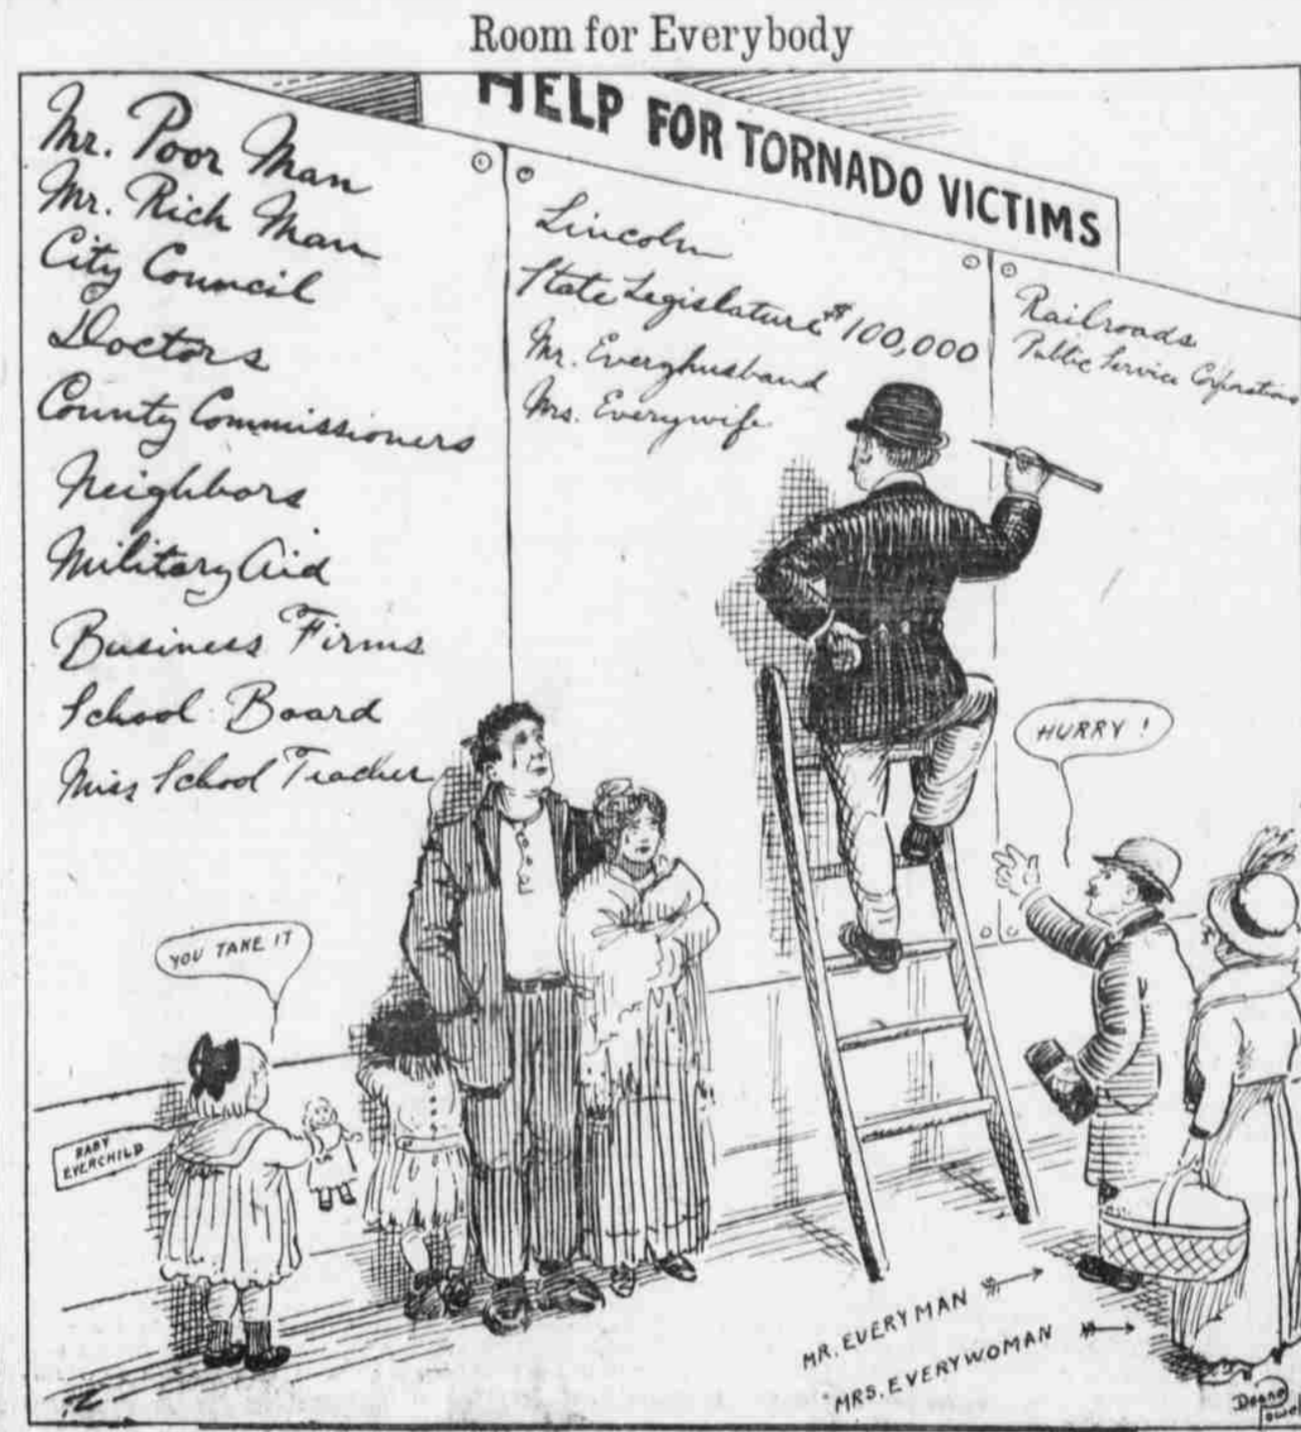 Room for Everybody
HELP FOR TORNADO VICTIMS
Mr. Poor Man
Mr. Rich Man
City Council
Doctors
County Commissioners
Neighbors
Military Aid
Business Firms
School Board
Miss School Teacher
Lincoln
State Legislature $100,000
Mr. Everyhusband
Mrs. Everywife
Railroads
Public Service Corporations
HURRY!
YOU TAKE IT
BABY
EVERCHILD
MR. EVERYMAN
MRS. EVERYWOMAN
Powell